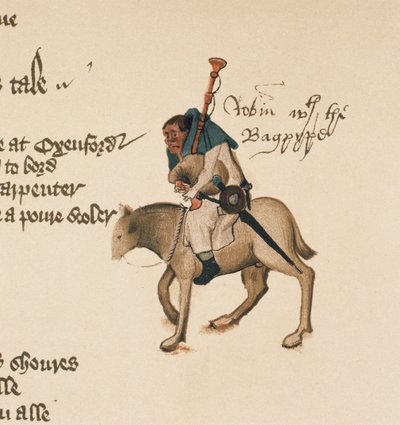 tale
Robin wth the
Bagpype
at Oxenford
to bord
arpenter
a poure Scoler
shoures
alle